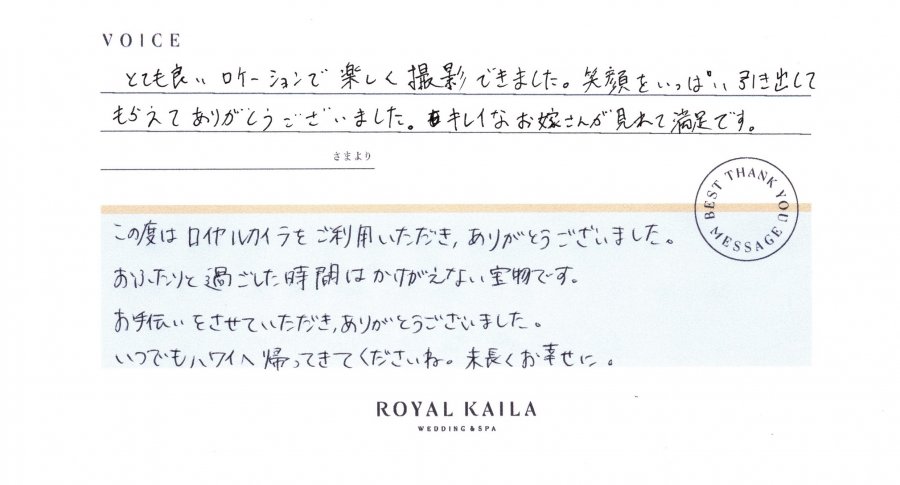 VOICE
とても良い ロケーションで 楽しく 撮影できました。笑顔をいっぱい引き出して
もらえて ありがとうございました。キレイな お嫁さんが 見れて 満足です。
さまより
BEST THANK YOU MESSAGE
この度は ロイヤルカイラを ご利用いただき、ありがとうございました。
おふたりと 過ごした 時間は かけがえない 宝物です。
お手伝いをさせていただき、ありがとうございました。
いつでもハワイへ 帰ってきてくださいね。末長くお幸せに。
ROYAL KAILA
WEDDING & SPA